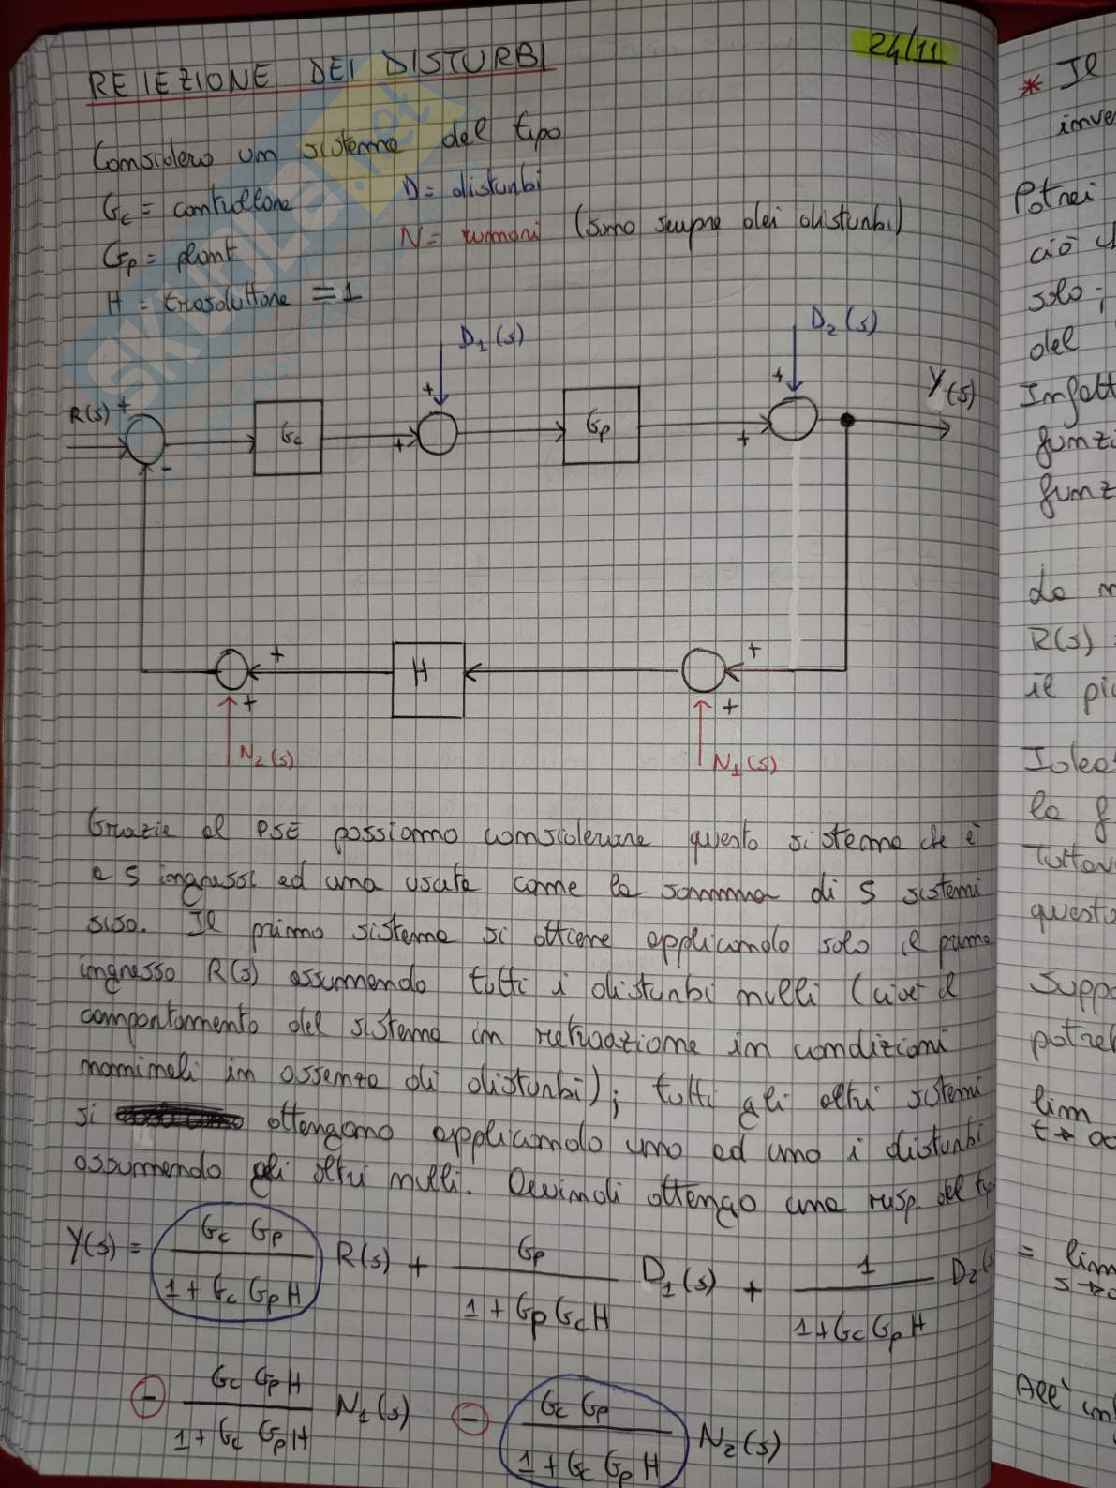 REIEZIONE DEI DISTURBI
24/11
Considero un sistema del tipo
Gc = controllore D = disturbi
Gp = plant N = rumori (sono sempre dei disturbi)
H = trasduttore = 1
D1(s)
D2(s)
R(s) + - Gc + + Gp + + Y(s)
+ H +
+ +
N2(s) N1(s)
Grazie al PSE possiamo considerare questo sistema che è
a 5 ingressi ed una uscita come la somma di 5 sistemi
SISO. Il primo sistema si ottiene applicando solo il primo
ingresso R(s) assumendo tutti i disturbi nulli (cioè il
comportamento del sistema in retroazione in condizioni
nominali in assenza di disturbi); tutti gli altri sistemi
si ottengono applicando uno ed uno i disturbi
assumendo gli altri nulli. Quindi ottengo una risp. del tipo
Y(s) = Gc Gp / 1 + Gc Gp H R(s) + Gp / 1 + Gp Gc H D1(s) + 1 / 1 + Gc Gp H D2(s
- Gc Gp H / 1 + Gc Gp H N1(s) - Gc Gp / 1 + Gc Gp H N2(s)
* Il
inve
Potrei
ciò
solo
del
Infatt
funzi
funz
R(s)
il
la f
Tuttav
questo
Suppo
potre
lim
t→∞
= lim
s→0
All' in
SKUOLA.net